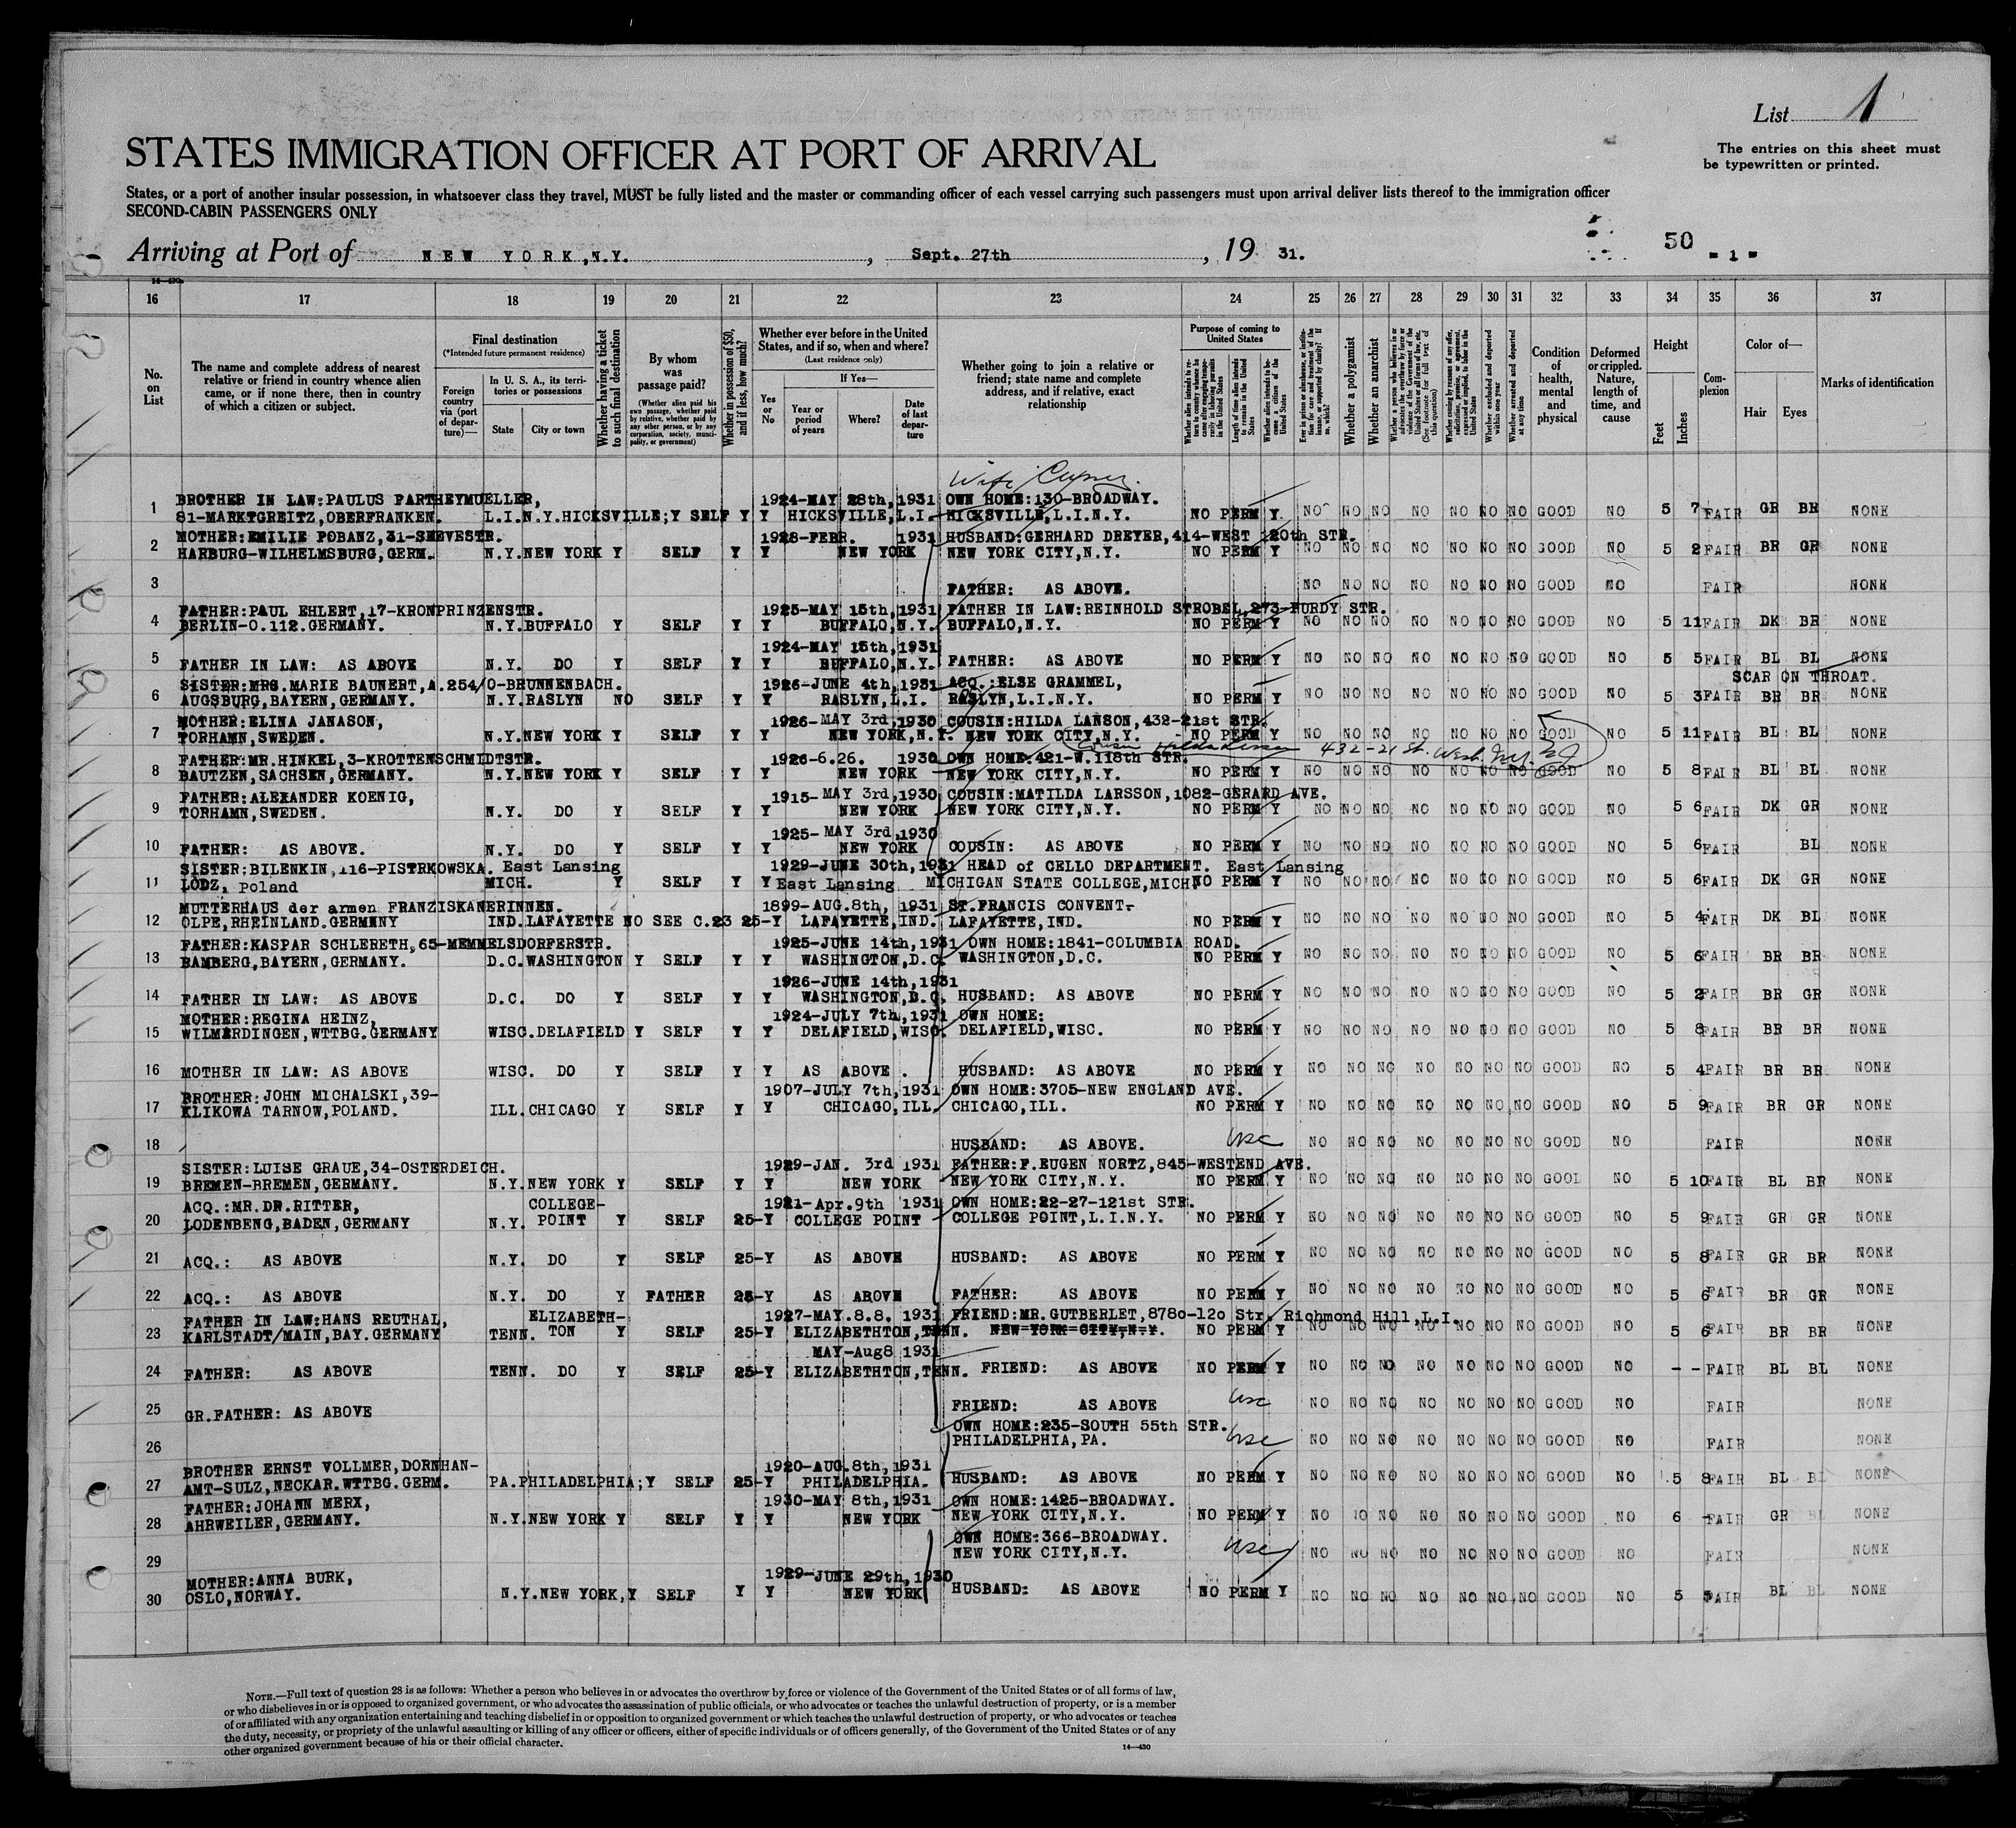 List 1
The entries on this sheet must
be typewritten or printed.
STATES IMMIGRATION OFFICER AT PORT OF ARRIVAL
States, or a port of another insular possession, in whatsoever class they travel, MUST be fully listed and the master or commanding officer of each vessel carrying such passengers must upon arrival deliver lists thereof to the immigration officer
SECOND-CABIN PASSENGERS ONLY
Arriving at Port of NEW YORK,N.Y. , Sept. 27th , 19 31.
50
- 1 -
14-430
16 17 18 19 20 21 22 23 24 25 26 27 28 29 30 31 32 33 34 35 36 37
No. on List
The name and complete address of nearest relative or friend in country whence alien came, or if none there, then in country of which a citizen or subject.
Final destination
(*Intended future permanent residence)
Foreign country via (port of departure)—
In U. S. A., its territories or possessions
State
City or town
Whether having a ticket to such final destination
By whom was passage paid?
(Whether alien paid his own passage, whether paid by relative, whether paid by any other person, or by any corporation, society, municipality, or government)
Whether in possession of $50, and if less, how much?
Whether ever before in the United States, and if so, when and where?
(Last residence only)
If Yes—
Yes or No
Year or period of years
Where?
Date of last departure
Whether going to join a relative or friend; state name and complete address, and if relative, exact relationship
Purpose of coming to United States
Whether alien intends to return to country whence he came after engaging temporarily in laboring pursuits in the United States
Length of time alien intends to remain in the United States
Whether alien intends to become a citizen of the United States
Ever in prison or almshouse, or institution for care and treatment of the insane, or supported by charity? If so, which?
Whether a polygamist
Whether an anarchist
Whether a person who believes in or advocates the overthrow by force or violence of the Government of the United States or of all forms of law, etc. (See footnote for full text of this question)
Whether coming by reason of any offer, solicitation, promise, or agreement, expressed or implied, to labor in the United States
Whether excluded and deported within one year
Whether arrested and deported at any time
Condition of health, mental and physical
Deformed or crippled. Nature, length of time, and cause
Height
Feet
Inches
Complexion
Color of—
Hair
Eyes
Marks of identification
Wife
1 BROTHER IN LAW:PAULUS PARTHEYMUELLER, 1924-MAY 28th,1931 OWN HOME:130-BROADWAY.
81-MARKTGREITZ,OBERFRANKEN. L.I.N.Y.HICKSVILLE;Y SELF Y Y HICKSVILLE,L.I. HICKSVILLE,L.I.N.Y. NO PERM Y NO NO NO NO NO NO NO GOOD NO 5 7 FAIR GR BR NONE
2 MOTHER:EMILIE POBANZ,31-SEEVESTR. 1928-FEBR. 1931 HUSBAND:GERHARD DREYER,414-WEST 120th STR.
HARBURG-WILHELMSBURG,GERM. N.Y.NEW YORK Y SELF Y Y NEW YORK NEW YORK CITY,N.Y. NO PERM Y NO NO NO NO NO NO NO GOOD NO 5 2 FAIR BR GR NONE
3 FATHER: AS ABOVE. NO NO NO NO NO NO NO GOOD NO FAIR NONE
4 FATHER:PAUL EHLERT,17-KRONPRINZENSTR. 1925-MAY 15th,1931 FATHER IN LAW:REINHOLD STROBEL,273-PURDY STR.
BERLIN-O.112.GERMANY. N.Y.BUFFALO Y SELF Y Y BUFFALO,N.Y. BUFFALO,N.Y. NO PERM Y NO NO NO NO NO NO NO GOOD NO 5 11 FAIR DK BR NONE
1924-MAY 15th,1931
5 FATHER IN LAW: AS ABOVE N.Y. DO Y SELF Y Y BUFFALO,N.Y. FATHER: AS ABOVE NO PERM Y NO NO NO NO NO NO NO GOOD NO 5 5 FAIR BL BL NONE
SCAR ON THROAT.
6 SISTER:MRS.MARIE BAUNERT,A.254/0-BRUNNENBACH. 1926-JUNE 4th,1931 ACQ.:ELSE GRAMMEL,
AUGSBURG,BAYERN,GERMANY. N.Y.RASLYN NO SELF Y Y RASLYN,L.I. RASLYN,L.I.N.Y. NO PERM Y NO NO NO NO NO NO NO GOOD NO 5 3 FAIR BR BR NONE
7 MOTHER:ELINA JANASON, 1926-MAY 3rd,1930 COUSIN:HILDA LARSON,432-21st STR.
TORHAMN,SWEDEN. N.Y.NEW YORK Y SELF Y Y NEW YORK,N.Y. NEW YORK CITY,N.Y. NO PERM Y NO NO NO NO NO NO NO GOOD NO 5 11 FAIR BL BL NONE
Cousin Hilda Larson 432-21 St. West N.Y. NJ
8 FATHER:MR.HINKEL,3-KROTTENSCHMIDTSTR. 1926-6.26. 1930 OWN HOME.421-W.118th STR.
BAUTZEN,SACHSEN,GERMANY. N.Y.NEW YORK Y SELF Y Y NEW YORK NEW YORK CITY,N.Y. NO PERM Y NO NO NO NO NO NO NO GOOD NO 5 8 FAIR BL BL NONE
9 FATHER:ALEXANDER KOENIG, 1915-MAY 3rd,1930 COUSIN:MATILDA LARSSON,1082-GERARD AVE.
TORHAMN,SWEDEN. N.Y. DO Y SELF Y Y NEW YORK NEW YORK CITY,N.Y. NO PERM Y NO NO NO NO NO NO NO GOOD NO 5 6 FAIR DK GR NONE
1925-MAY 3rd,1930
10 FATHER: AS ABOVE. N.Y. DO Y SELF Y Y NEW YORK COUSIN: AS ABOVE NO PERM Y NO NO NO NO NO NO NO GOOD NO 5 6 FAIR BL NONE
11 SISTER:BILENKIN,116-PISTRKOWSKA. East Lansing 1929-JUNE 30th,1931 HEAD of CELLO DEPARTMENT. East Lansing
LODZ, Poland MICH. Y SELF Y Y East Lansing MICHIGAN STATE COLLEGE,MICH. NO PERM Y NO NO NO NO NO NO NO GOOD NO 5 6 FAIR DK GR NONE
12 MUTTERHAUS der armen FRANZISKANERINNEN. 1899-AUG.8th, 1931 ST.FRANCIS CONVENT-
OLPE,RHEINLAND.GERMANY IND.LAFAYETTE NO SEE C.23 25-Y LAFAYETTE,IND. LAFAYETTE,IND. NO PERM Y NO NO NO NO NO NO NO GOOD NO 5 4 FAIR DK BL NONE
13 FATHER:KASPAR SCHLERETH,65-MEMMELSDORFERSTR. 1925-JUNE 14th,1931 OWN HOME:1841-COLUMBIA ROAD.
BAMBERG,BAYERN,GERMANY. D.C.WASHINGTON Y SELF Y Y WASHINGTON,D.C. WASHINGTON,D.C. NO PERM Y NO NO NO NO NO NO NO GOOD NO 5 6 FAIR BR BR NONE
1926-JUNE 14th,1931
14 FATHER IN LAW: AS ABOVE D.C. DO Y SELF Y Y WASHINGTON,D.C. HUSBAND: AS ABOVE NO PERM Y NO NO NO NO NO NO NO GOOD NO 5 2 FAIR BR GR NONE
15 MOTHER:REGINA HEINZ, 1924-JULY 7th,1931 OWN HOME:
WILMARDINGEN,WTTBG.GERMANY WISC.DELAFIELD Y SELF Y Y DELAFIELD,WISC. DELAFIELD,WISC. NO PERM Y NO NO NO NO NO NO NO GOOD NO 5 8 FAIR BR BR NONE
16 MOTHER IN LAW: AS ABOVE WISC. DO Y SELF Y Y AS ABOVE . HUSBAND: AS ABOVE NO PERM Y NO NO NO NO NO NO NO GOOD NO 5 4 FAIR BR BR NONE
17 BROTHER:JOHN MICHALSKI,39- 1907-JULY 7th,1931 OWN HOME:3705-NEW ENGLAND AVE.
KLIKOWA TARNOW,POLAND. ILL.CHICAGO Y SELF Y Y CHICAGO,ILL. CHICAGO,ILL. NO PERM Y NO NO NO NO NO NO NO GOOD NO 5 9 FAIR BR GR NONE
18 HUSBAND: AS ABOVE. USC NO NO NO NO NO NO NO GOOD NO FAIR NONE
19 SISTER:LUISE GRAUE,34-OSTERDEICH. 1929-JAN. 3rd 1931 FATHER:F.EUGEN NORTZ,845-WESTEND AVE.
BREMEN-BREMEN,GERMANY. N.Y.NEW YORK Y SELF Y Y NEW YORK NEW YORK CITY,N.Y. NO PERM Y NO NO NO NO NO NO NO GOOD NO 5 10 FAIR BL BR NONE
20 ACQ.:MR.DR.RITTER, COLLEGE- 1921-Apr.9th 1931 OWN HOME:22-27-121st STR.
LODENBENG,BADEN,GERMANY N.Y. POINT Y SELF 25-Y COLLEGE POINT COLLEGE POINT,L.I.N.Y. NO PERM Y NO NO NO NO NO NO NO GOOD NO 5 9 FAIR GR GR NONE
21 ACQ.: AS ABOVE N.Y. DO Y SELF 25-Y AS ABOVE HUSBAND: AS ABOVE NO PERM Y NO NO NO NO NO NO NO GOOD NO 5 8 FAIR GR BR NONE
22 ACQ.: AS ABOVE N.Y. DO Y FATHER 25-Y AS ABOVE FATHER: AS ABOVE NO PERM Y NO NO NO NO NO NO NO GOOD NO 5 6 FAIR BR GR NONE
23 FATHER IN LAW:HANS REUTHAL, ELIZABETH- 1927-MAY.8.8. 1931 FRIEND:MR.GUTBERLET,8780-120 Str. Richmond Hill,L.I.
KARLSTADT/MAIN,BAY.GERMANY TENN. TON Y SELF 25-Y ELIZABETHTON,TENN. NEW YORK CITY,N.Y. NO PERM Y NO NO NO NO NO NO NO GOOD NO 5 6 FAIR BR BR NONE
MAY-Aug8 1931
24 FATHER: AS ABOVE TENN. DO Y SELF 25-Y ELIZABETHTON,TENN. FRIEND: AS ABOVE NO PERM Y NO NO NO NO NO NO NO GOOD NO - - FAIR BL BL NONE
25 GR.FATHER: AS ABOVE FRIEND: AS ABOVE USC NO NO NO NO NO NO NO GOOD NO FAIR NONE
26 OWN HOME:235-SOUTH 55th STR.
PHILADELPHIA,PA. USC NO NO NO NO NO NO NO GOOD NO FAIR NONE
27 BROTHER ERNST VOLLMER,DORNHAN- 1920-AUG.8th,1931
AMT-SULZ,NECKAR.WTTBG.GERM. PA.PHILADELPHIA;Y SELF 25-Y PHILADELPHIA. HUSBAND: AS ABOVE NO PERM Y NO NO NO NO NO NO NO GOOD NO 5 8 FAIR BL BL NONE
28 FATHER:JOHANN MERX, 1930-MAY 8th,1931 OWN HOME:1425-BROADWAY.
AHRWEILER,GERMANY. N.Y.NEW YORK Y SELF Y Y NEW YORK NEW YORK CITY,N.Y. NO PERM Y NO NO NO NO NO NO NO GOOD NO 6 - FAIR GR BL NONE
29 OWN HOME:366-BROADWAY.
NEW YORK CITY,N.Y. USC NO NO NO NO NO NO NO GOOD NO FAIR NONE
30 MOTHER:ANNA BURK, 1929-JUNE 29th,1930
OSLO,NORWAY. N.Y.NEW YORK,Y SELF Y Y NEW YORK HUSBAND: AS ABOVE NO PERM Y NO NO NO NO NO NO NO GOOD NO 5 5 FAIR BL BL NONE
NOTE.—Full text of question 28 is as follows: Whether a person who believes in or advocates the overthrow by force or violence of the Government of the United States or of all forms of law,
or who disbelieves in or is opposed to organized government, or who advocates the assassination of public officials, or who advocates or teaches the unlawful destruction of property, or is a member
of or affiliated with any organization entertaining and teaching disbelief in or opposition to organized government or which teaches the unlawful destruction of property, or who advocates or teaches
the duty, necessity, or propriety of the unlawful assaulting or killing of any officer or officers, either of specific individuals or of officers generally, of the Government of the United States or of any
other organized government because of his or their official character.
14-430